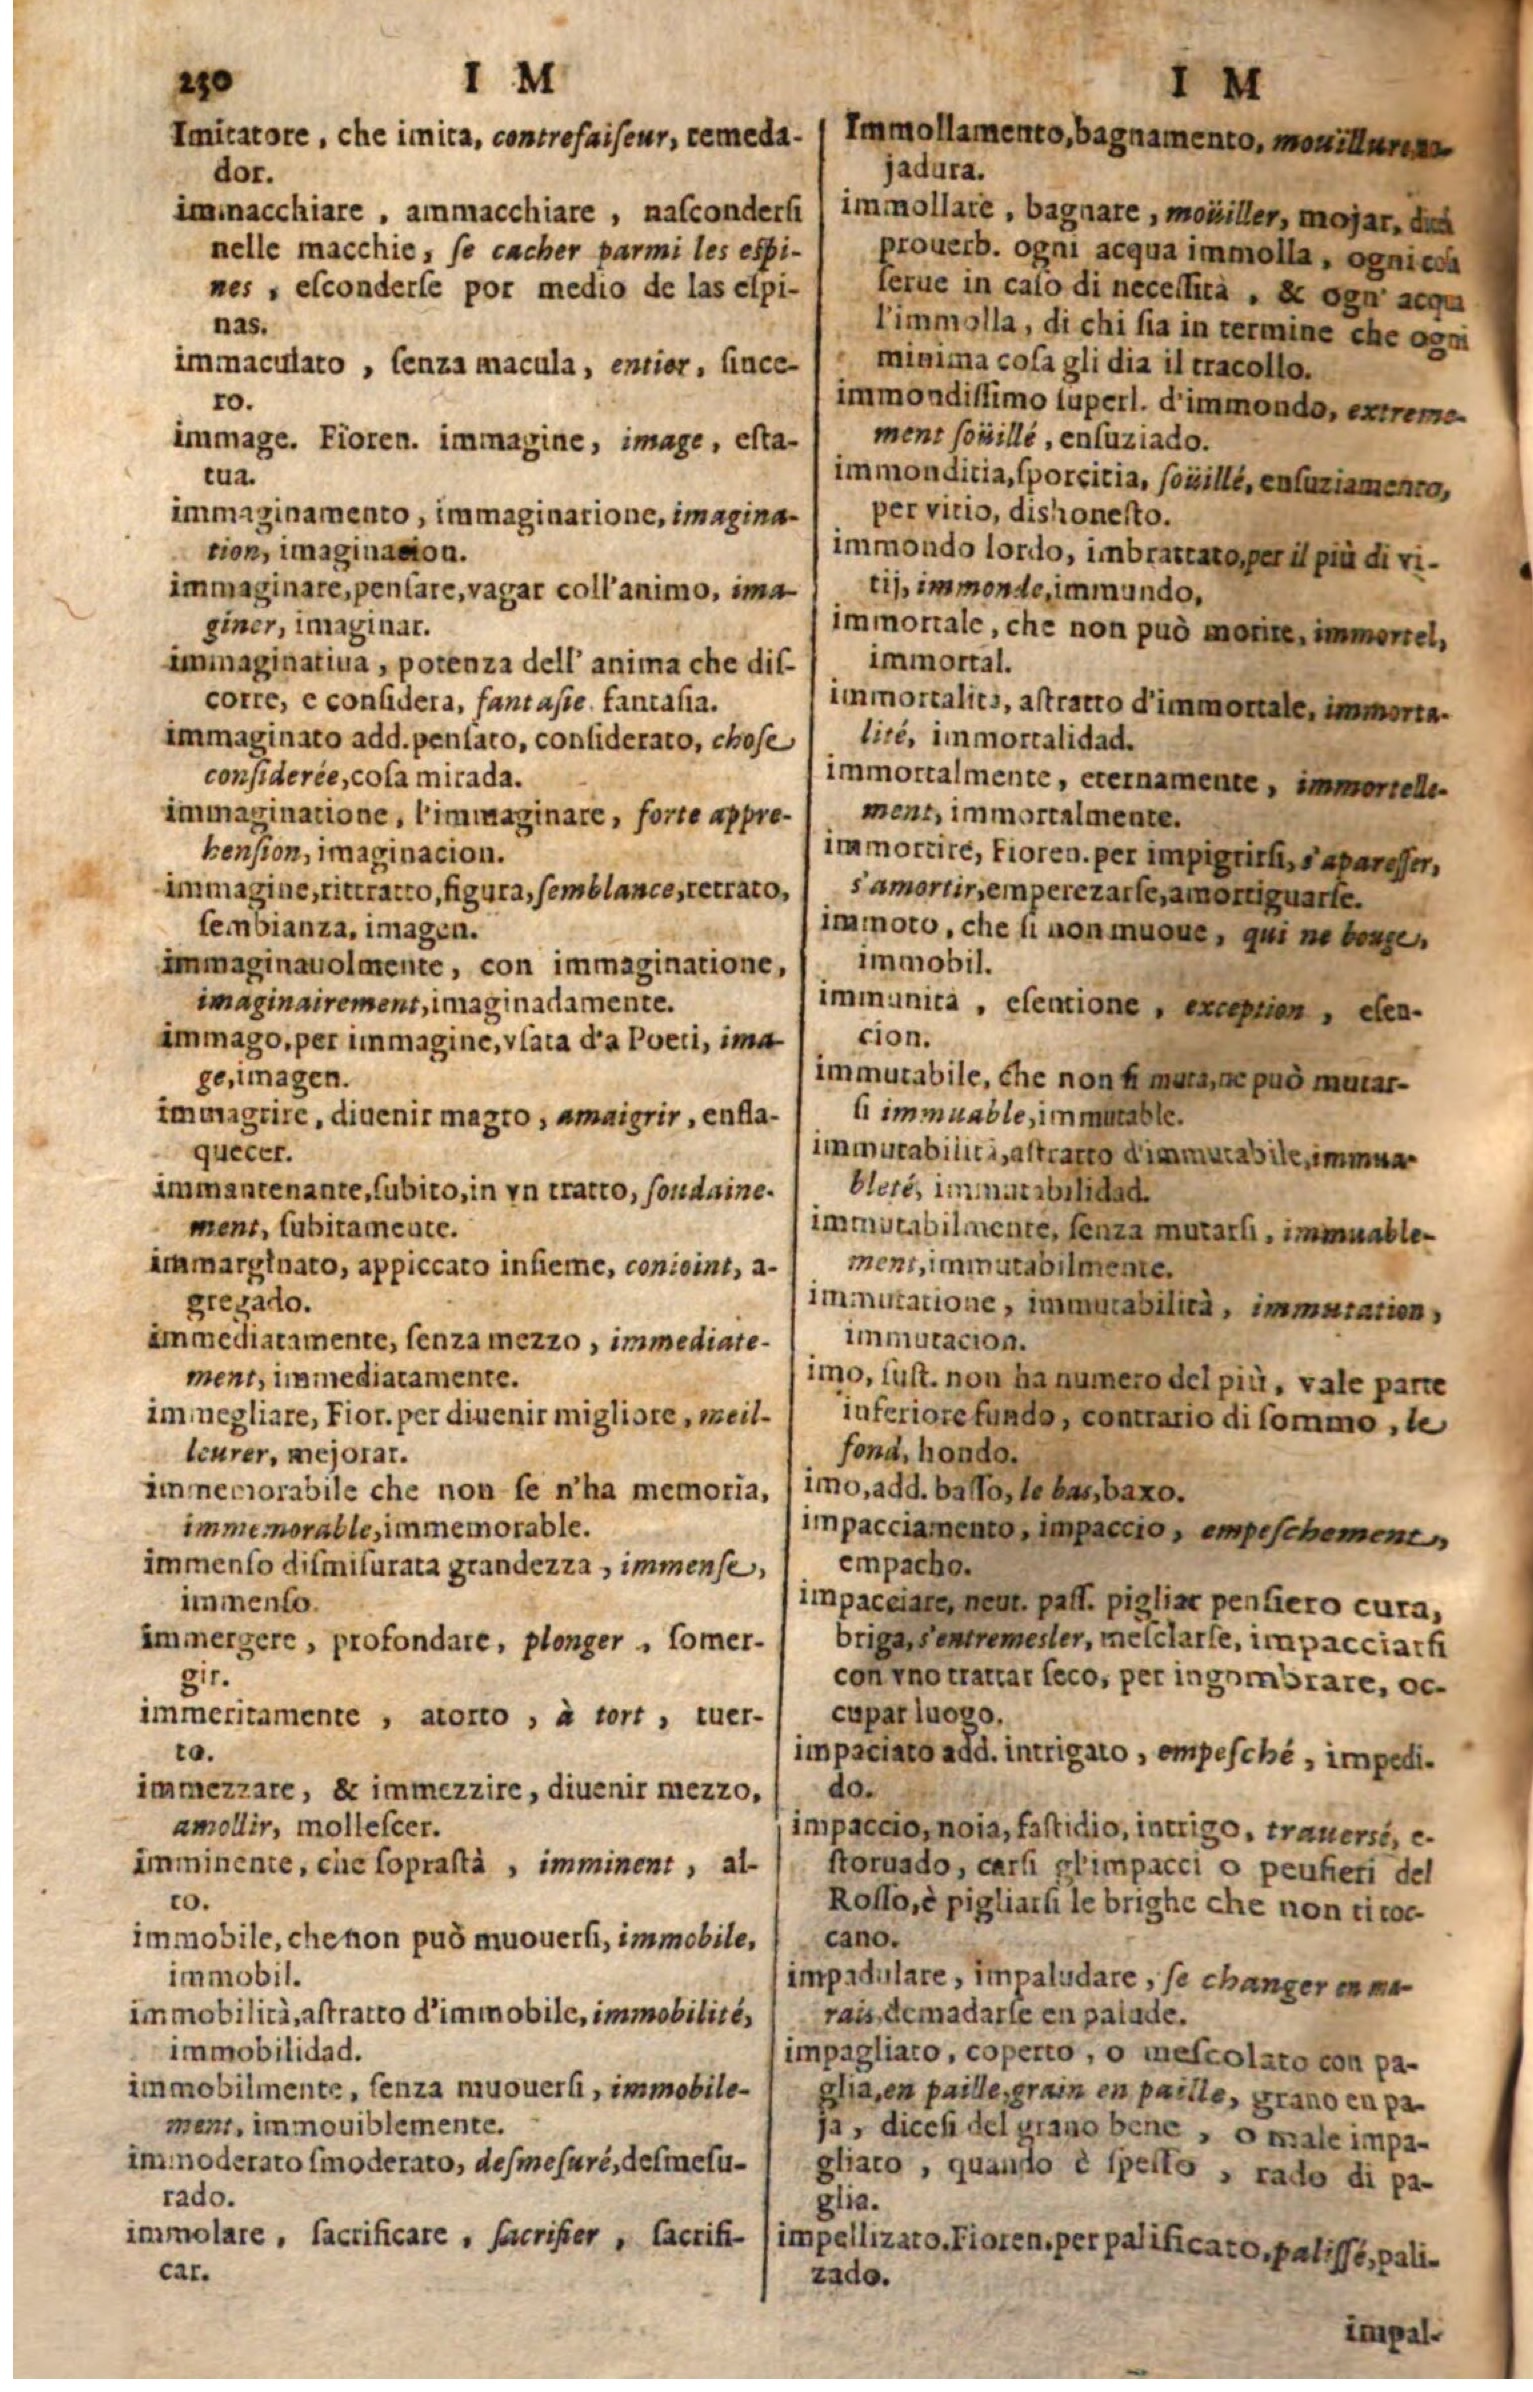 250
I M
Imitatore, che imita, contrefaiſeur, remeda-
dor.
immacchiare, ammacchiare, naſconderſi
nelle macchie, ſe cacher parmi les eſpi-
nes, eſconderſe por medio de las eſpi-
nas.
immaculato, ſenza macula, entier, ſince-
ro.
immage. Fioren. immagine, image, eſta-
tua.
immaginamento, immaginatione, imagina-
tion, imaginacion.
immaginare, penſare, vagar coll'animo, ima-
giner, imaginar.
immaginatiua, potenza dell' anima che diſ-
corre, e conſidera, fantaſie. fantaſia.
immaginato add. penſato, conſiderato, choſe
conſiderée, coſa mirada.
immaginatione, l'immaginare, forte appre-
henſion, imaginacion.
immagine, rittratto, figura, ſemblance, retrato,
ſembianza, imagen.
immaginauolmente, con immaginatione,
imaginairement, imaginadamente.
immago, per immagine, vſata d'a Poeti, ima-
ge, imagen.
immagrire, diuenir magro, amaigrir, enfla-
quecer.
immantenante, ſubito, in vn tratto, ſoudaine-
ment, ſubitamente.
immarginato, appiccato inſieme, conioint, a-
gregado.
immediatamente, ſenza mezzo, immediate-
ment, immediatamente.
immegliare, Fior. per diuenir migliore, meil-
leurer, mejorar.
immemorabile che non ſe n'ha memoria,
immemorable, immemorable.
immenſo diſmiſurata grandezza, immenſe,
immenſo.
immergere, profondare, plonger, ſomer-
gir.
immeritamente, atorto, à tort, tuer-
to.
immezzare, & immezzire, diuenir mezzo,
amollir, molleſcer.
imminente, che ſopraſtà, imminent, al-
to.
immobile, che non può muouerſi, immobile,
immobil.
immobilità, aſtratto d'immobile, immobilité,
immobilidad.
immobilmente, ſenza muouerſi, immobile-
ment, immouiblemente.
immoderato ſmoderato, deſmeſuré, deſmeſu-
rado.
immolare, ſacrificare, ſacrifier, ſacrifi-
car.
I M
Immollamento, bagnamento, moüillure,
jadura.
immollare, bagnare, moüiller, mojar,
prouerb. ogni acqua immolla, ogni coſa
ſerue in caſo di neceſſità, & ogn' acqua
l'immolla, di chi ſia in termine che ogni
minima coſa gli dia il tracollo.
immondiſſimo ſuperl. d'immondo, extreme-
ment ſoüillé, enſuziado.
immonditia, ſporcitia, ſoüillé, enſuziamento,
per vitio, dishoneſto.
immondo lordo, imbrattato, per il più di vi-
tij, immonde, immundo,
immortale, che non può morire, immortel,
immortal.
immortalità, aſtratto d'immortale, immorta-
lité, immortalidad.
immortalmente, eternamente, immortelle-
ment, immortalmente.
immortire, Fioren. per impigrirſi, s'apareſſer,
s'amortir, emperezarſe, amortiguarſe.
immoto, che ſi non muoue, qui ne bouge,
immobil.
immunità, eſentione, exception, eſen-
cion.
immutabile, che non ſi muta, ne può mutar-
ſi immuable, immutable.
immutabilità, aſtratto d'immutabile, immua-
bleté, immutabilidad.
immutabilmente, ſenza mutarſi, immuable-
ment, immutabilmente.
immutatione, immutabilità, immutation,
immutacion.
imo, ſuſt. non ha numero del più, vale parte
inferiore fundo, contrario di ſommo, le
fond, hondo.
imo, add. baſſo, le bas, baxo.
impacciamento, impaccio, empeſchement,
empacho.
impacciare, neut. paſſ. pigliar penſiero cura,
briga, s'entremesler, meſclarſe, impacciarſi
con vno trattar ſeco, per ingombrare, oc-
cupar luogo.
impaciato add. intrigato, empeſché, impedi-
do.
impaccio, noia, faſtidio, intrigo, trauersé, e-
ſtoruado, carſi gl'impacci o peuſieri del
Roſſo, è pigliarſi le brighe che non ti toc-
cano.
impadulare, impaludare, ſe changer en ma-
rais, demadarſe en palude.
impagliato, coperto, o meſcolato con pa-
glia, en paille, grain en paille, grano en pa-
ja, diceſi del grano bene, o male impa-
gliato, quando è ſpeſſo, rado di pa-
glia.
impellizato. Fioren. per palificato, paliſſé, pali-
zado.
impal-